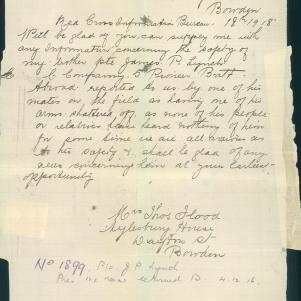 Bowden
Red Cross Information Bureau. 18-1-18
Will be glad if you can supply me with
any information concerning the safety of
my brother pte James P. Lynch
C Company 5 Pioneer Batt
Abroad reported to us by one of his
mates on the field as having one of his
arms shattered off as none of his people
or relatives have heard nothing of him
for some time we are all anxious as
to his safety & shall be glad of any
news concerning him at your earliest
opportunity
Mrs Thos Flood
Aylesbury House
Drayton St
Bowden
No 1899. Pte J P Lynch